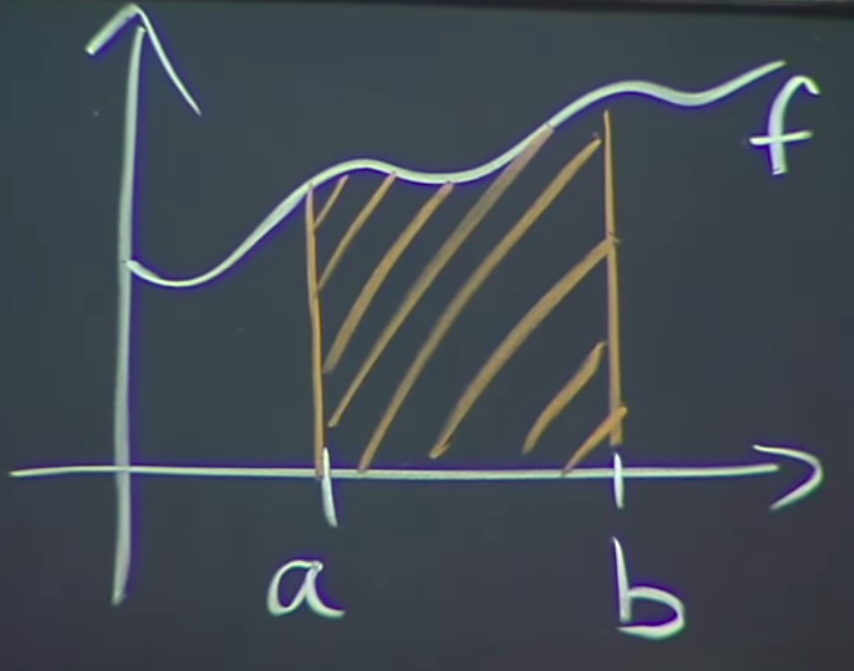 f
a b